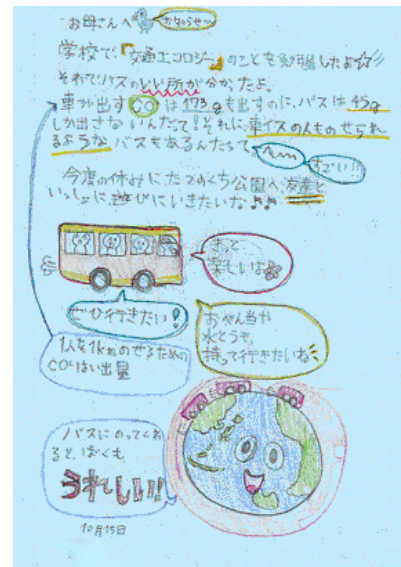 お母さんへ
おしらせ〜
学校で、『交通エコロジー』のことを勉強したよ☆
それでバスのいい所が分かったよ。
車が出すCO²は173gも出すのに、バスは45g
しか出さないんだって!それに、車イスの人ものせられ
るようなバスもあるんだって。
へ〜〜
すごい!!
今度の休みにたてのくち公園へ、友達と
いっしょに遊びにいきたいな♪♪
きっと
楽しいよ
ぜひ行きたい!
おべん当や
水とうも、
持って行きたいね
1人を1kmのせるための
CO²はい出量
バスにのってくれ
ると、ぼくも、
うれしい!!
10月15日